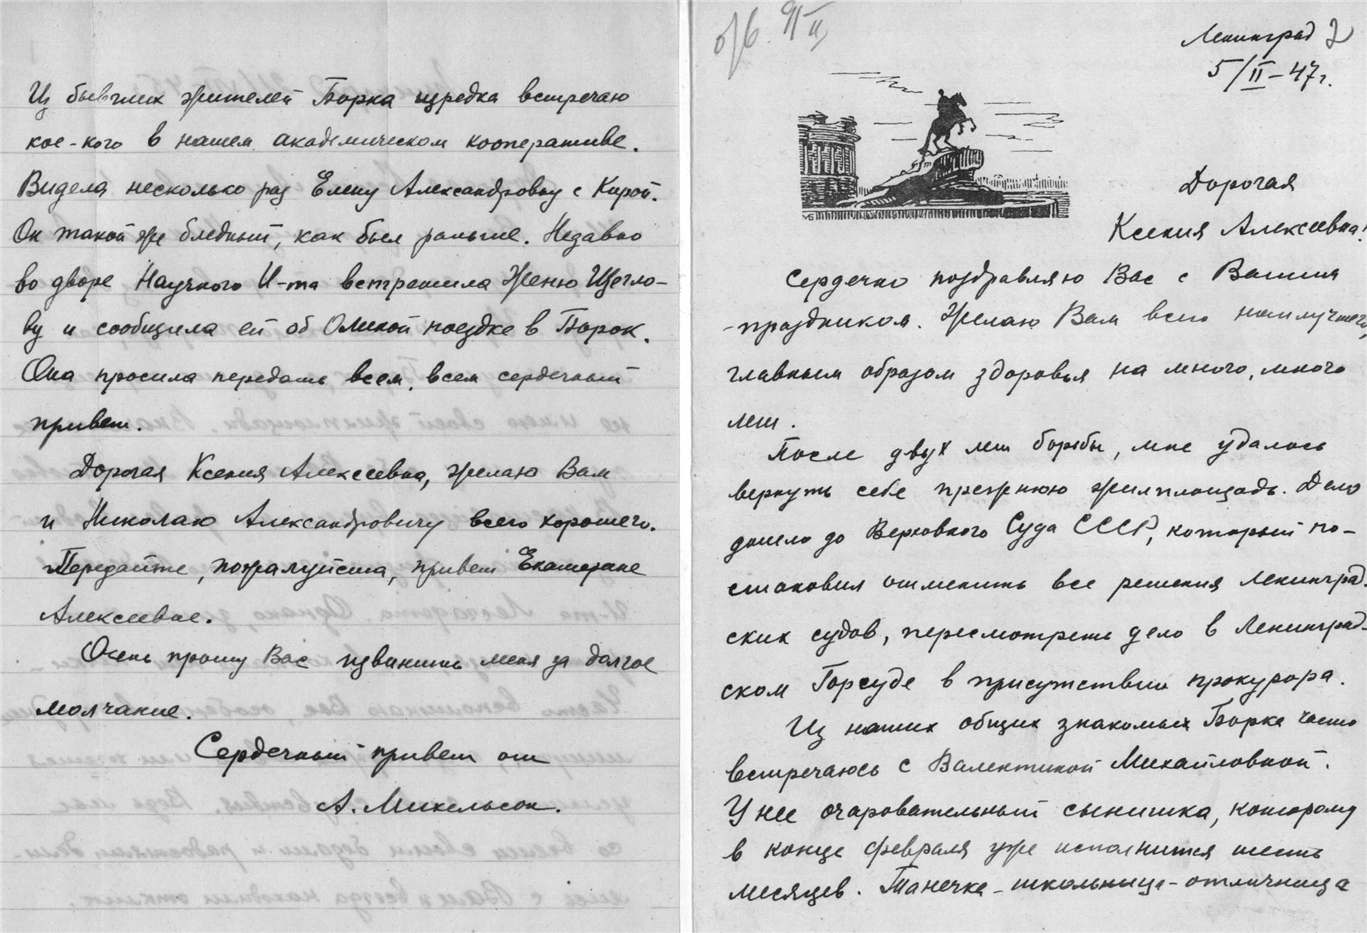 Из бывших жителей Борка изредка встречаю
кое-кого в нашем академическом кооперативе.
Видела несколько раз Елену Александровну с Кирой.
Он такой же бледный, как был раньше. Недавно
во дворе Научного И-та встретила Женю Щегло-
ву и сообщила ей об Олиной поездке в Борок.
Она просила передать всем, всем сердечный
привет.
Дорогая Ксения Алексеевна, желаю Вам
и Николаю Александровичу всего хорошего.
Передайте, пожалуйста, привет Екатерине
Алексеевне.
Очень прошу Вас извинить меня за долгое
молчание.
Сердечный привет от
А. Михельсон.
Ленинград 2
5/II-47г.
Дорогая
Ксения Алексеевна!
Сердечно поздравляю Вас с Вашим
праздником. Желаю Вам всего наилучшего,
главным образом здоровья на много, много
лет.
После двух лет борьбы, мне удалось
вернуть себе прежнюю жилплощадь. Дело
дошло до Верховного Суда СССР, который по-
становил отменить все решения Ленинград-
ских судов, пересмотреть дело в Ленинград-
ском Горсуде в присутствии прокурора.
Из наших общих знакомых Борка часто
встречаюсь с Валентиной Михайловной.
У нее очаровательный сынишка, которому
в конце февраля уже исполнится шесть
месяцев. Танечка - школьница-отличница